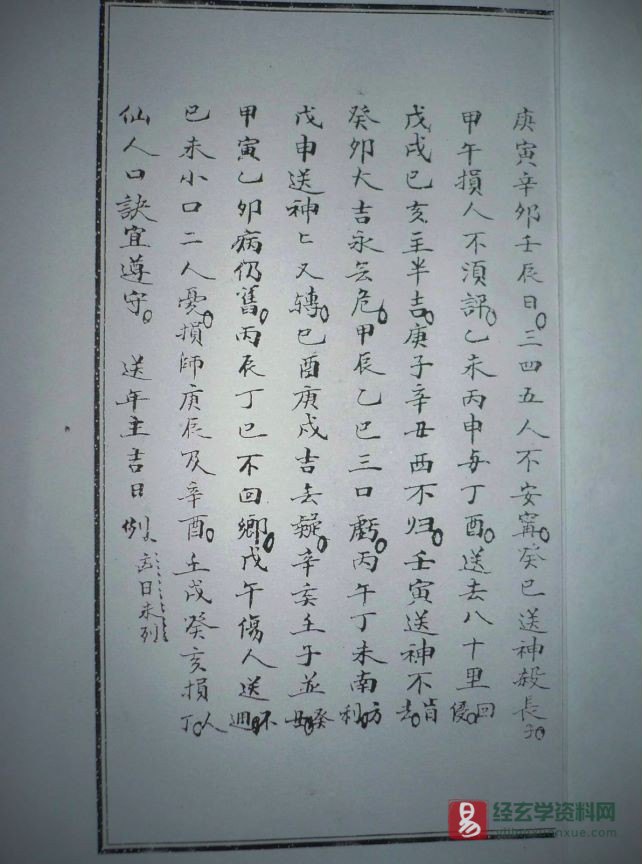 庚寅辛卯壬辰日。三四五人不安寗。癸巳送神殺長子。
甲午損人不須評。乙未丙申毎丁酉。送去八十里回侵。
戊戌巳亥主半吉。庚子辛丑西不归。壬寅送神不肯去。
癸卯大吉永无危。甲辰乙巳三口虧。丙午丁未南方利。
戊申送神匕又轉。巳酉庚戌吉去疑。辛亥壬子並癸丑。
甲寅乙卯病仍舊。丙辰丁巳不回鄉。戊午傷人送不迴。
巳未小口二人憂。損師庚辰及辛酉。壬戌癸亥損人丁。
仙人口訣宜遵守。 送年主吉日例。 日未列
经玄学资料网
yijingxuanxue.com